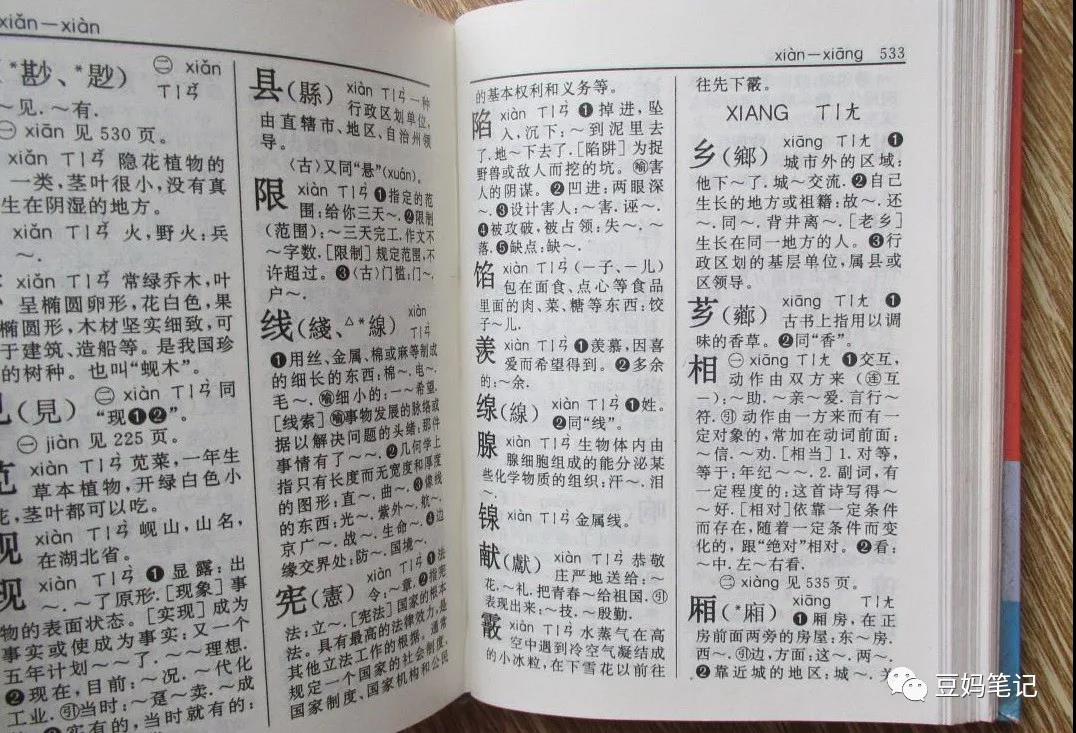 xiǎn—xiàn
*尠、*尟) ㊁ xiǎn
ㄒㄧㄢˇ
～见.～有.
㊀ xiān 见 530 页。
xiǎn ㄒㄧㄢˇ 隐花植物的
一类,茎叶很小,没有真
生在阴湿的地方。
xiǎn ㄒㄧㄢˇ 火,野火:兵
～.
xiǎn ㄒㄧㄢˇ 常绿乔木,叶
呈椭圆卵形,花白色,果
椭圆形,木材坚实细致,可
于建筑、造船等。是我国珍
的树种。也叫“蚬木”。
见(見) ㊁ xiàn ㄒㄧㄢˋ 同
“现❶❷”。
㊀ jiàn 见 225 页。
苋 xiàn ㄒㄧㄢˋ 苋菜,一年生
草本植物,开绿白色小
花,茎叶都可以吃。
岘 xiàn ㄒㄧㄢˋ 岘山,山名,
在湖北省。
现 xiàn ㄒㄧㄢˋ ❶显露:出
～.～了原形.[现象]事
物的表面状态。[实现]成为
事实或使成为事实:又一个
五年计划～～了.～～理想.
❷现在,目前:～况.～代化
工业.㊀当时:～趸～卖.～成
❸实有的,当时就有的:
县(縣) xiàn ㄒㄧㄢˋ 一种
行政区划单位,
由直辖市、地区、自治州领
导。
〈古〉又同“悬”(xuán)。
限 xiàn ㄒㄧㄢˋ ❶指定的范
围:给你三天～.❷限制
(范围):～三天完工.作文不
～字数.[限制]规定范围,不
许超过。❸〈古〉门槛:门～.
户～.
线(綫、△*線) xiàn
ㄒㄧㄢˋ
❶用丝、金属、棉或麻等制成
的细长的东西:棉～.电～.
毛～.㊀细小的:一～希望.
[线索]㊀事物发展的脉络或
据以解决问题的头绪:那件
事情有了～～.❷几何学上
指只有长度而无宽度和厚度
的图形:直～.曲～.❸像线
的东西:光～.紫外～.航～.
京广～.战～.生命～.❹边
缘交界处:防～.国境～.
宪(憲) xiàn ㄒㄧㄢˋ ❶法
令:～章.❷指宪
法:立～.[宪法]国家的根本
法。具有最高的法律效力,是
其他立法工作的根据。通常
规定一个国家的社会制度、
国家制度、国家机构和公民
xiàn—xiāng 533
的基本权利和义务等。
陷 xiàn ㄒㄧㄢˋ ❶掉进,坠
入,沉下:～到泥里去
了.地～下去了.[陷阱]为捉
野兽或敌人而挖的坑。㊀害
人的阴谋。❷凹进:两眼深
～.❸设计害人:～害.诬～.
❹被攻破,被占领:失～.～
落.❺缺点:缺～.
馅 xiàn ㄒㄧㄢˋ (—子、—儿)
包在面食、点心等食品
里面的肉、菜、糖等东西:饺
子～儿.
羡 xiàn ㄒㄧㄢˋ ❶羡慕,因喜
爱而希望得到。❷多余
的:～余.
缐(線) xiàn ㄒㄧㄢˋ ❶姓。
❷同“线”。
腺 xiàn ㄒㄧㄢˋ 生物体内由
腺细胞组成的能分泌某
些化学物质的组织:汗～.泪
～.
xiàn ㄒㄧㄢˋ 金属线。
献(獻) xiàn ㄒㄧㄢˋ 恭敬
庄严地送给:～
花.～礼.把青春～给祖国.㊀
表现出来:～技.～殷勤.
霰 xiàn ㄒㄧㄢˋ 水蒸气在高
空中遇到冷空气凝结成
的小冰粒,在下雪花以前往
往先下霰。
XIANG ㄒㄧㄤ
乡(鄉) xiāng ㄒㄧㄤ ❶
城市外的区域:
他下～了.城～交流.❷自己
生长的地方或祖籍:故～.还
～.同～.背井离～.[老乡]
生长在同一地方的人。❸行
政区划的基层单位,属县或
区领导。
芗(薌) xiāng ㄒㄧㄤ ❶
古书上指用以调
味的香草。❷同“香”。
相 ㊀ xiāng ㄒㄧㄤ ❶交互,
动作由双方来(㊀互
一):～助.～亲～爱.言行～
符.㊀动作由一方来而有一
定对象的,常加在动词前面:
～信.～劝.[相当]1.对等,
等于:年纪～～.2.副词,有
一定程度的:这首诗写得～
～好.[相对]依靠一定条件
而存在,随着一定条件而变
化的,跟“绝对”相对。❷看:
～中.左～右看.
㊁ xiàng 见 535 页。
厢(*廂) xiāng ㄒㄧㄤ
❶厢房,在正
房前面两旁的房屋:东～房.
西～.㊀边,方面:这～.两～.
❷靠近城的地区:城～.关
豆妈笔记